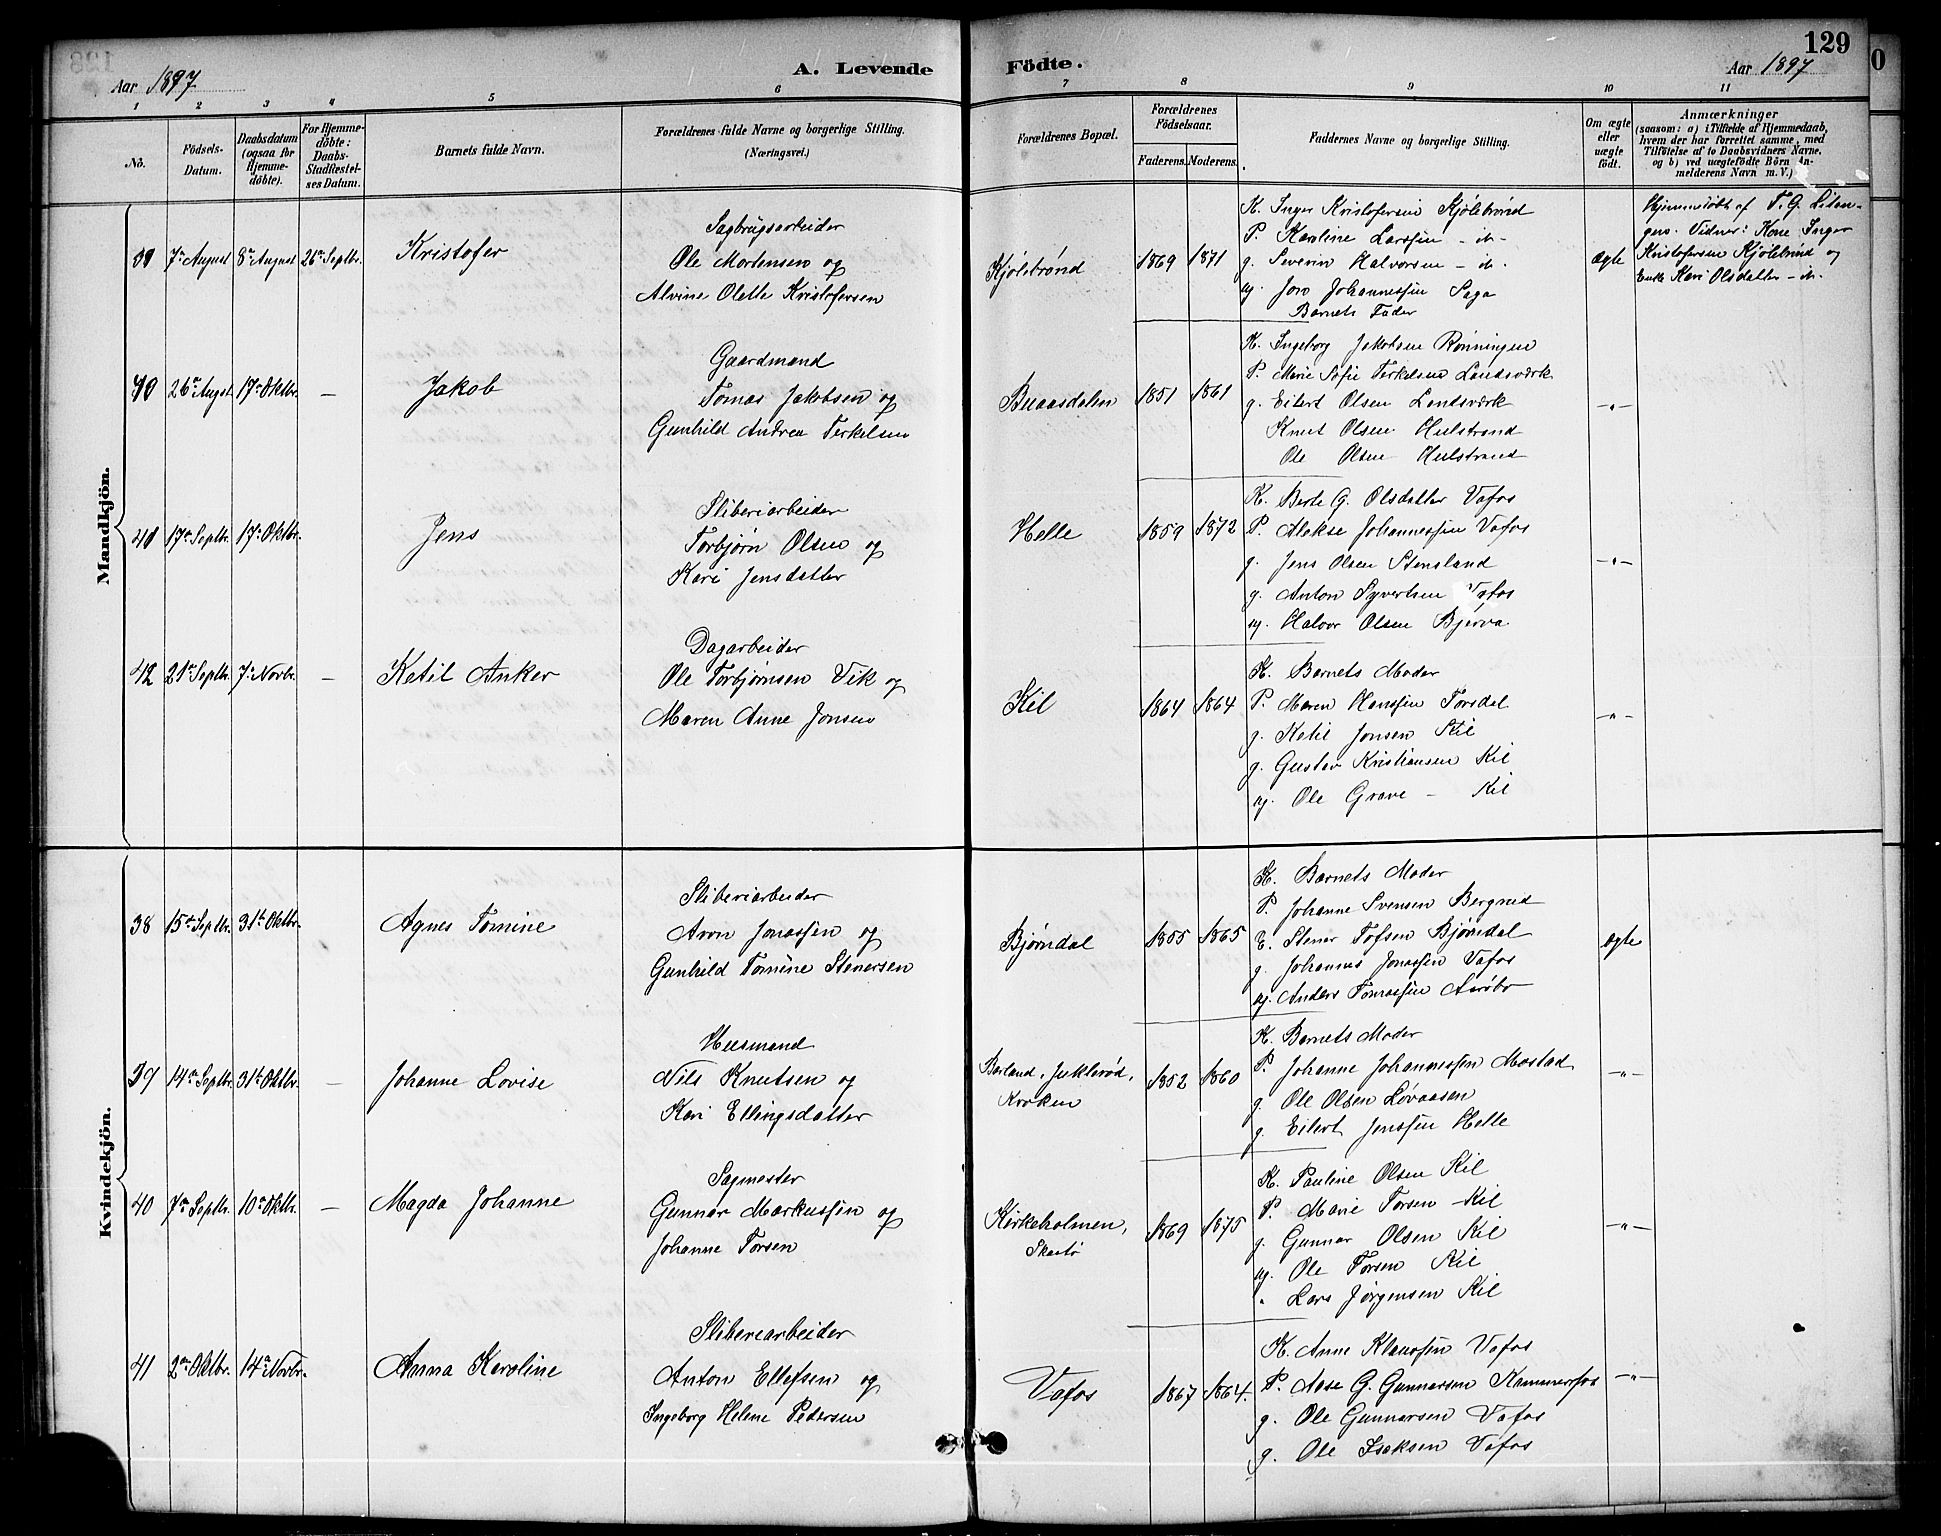 129
Aar 1897
A. Levende Födte.
Aar 1897
1 2 3 4 5 6 7 8 9 10 11
No.
Födsels-Datum.
Daabsdatum (ogsaa for Hjemme-döbte).
For Hjemme-döbte: Daabs-Stadfæstel-ses Datum.
Barnets fulde Navn.
Forældrenes fulde Navne og borgerlige Stilling.
(Næringsvei.)
Forældrenes Bopæl.
Forældrenes Födselsaar.
Faderens. Moderens.
Faddernes Navne og borgerlige Stilling.
Om ægte eller uægte født.
Anmærkninger
(saasom: a) i Tilfælde af Hjemmedaab,
hvem der har forrettet samme, med
Tilföielse af to Daabsvidners Navne,
og b) ved uægtefödte Börn An-
melderens Navn m. V.)
Mandkjön.
39 7de August 8de August 26de Septbr. Kristofer
Sagbrugsarbeider
Ole Mortensen og
Alvine Olette Kristofersen
Kjölebrönd 1869 1871
K. Inger Kristofersen Kjölebrönd
P. Karoline Larssen - ib -
g. Severin Halvorsen - ib.
ug. Joro Johannessen Saga
Barnets Fader
ægte
Hjemmedöbt af T. G. Litan-
gen. Vidner: Kone Inger
Kristofersen Kjölebrönd og
Enke Kari Olsdatter - ib.
40 26de Augst 17de Oktbr. — Jakob
Gaardmand
Tomas Jakobsen og
Gunhild Andrea Terkelsen
Buaasdalen 1851 1861
K. Ingeborg Jakobsen Rønningen
P. Marie Sofie Terkelsen Landsværk
g. Eilert Olsen Landsværk
Knut Olsen Hulstrand
Ole Olsen Hulstrand
-"-
41 17de Septbr. 17de Oktbr. Jens
Sliberiarbeider
Torbjørn Olsen og
Kari Jensdatter
Helle 1859 1872
K. Berte G. Olsdatter Vafos
P. Alekse Johannessen Vafos
g. Jens Olsen Stensland
g. Anton Syvertsen Vafos
ug. Halvor Olsen Bjerva
-"-
42 21de Septbr. 7de Novbr. — Ketil Anker
Dagarbeider
Ole Torbjørnsen Vik og
Maren Anne Jonsen
Kil 1864 1864
K. Barnets Moder
P. Maren Hanssen Torsdal
g. Ketil Jonsen Kil
g. Gustav Kristiansen Kil
ug. Ole Grave - Kil
-"-
Kvindekjön.
38 15de Septbr. 31te Oktbr. Agnes Tomine
Sliberiarbeider
Aron Jonassen og
Gunhild Tomine Stenersen
Bjørndal 1855 1865
K. Barnets Moder
P. Johanne Svensen Bergrud
E. Stener Tofsen Bjørndal
g. Johannes Jonassen Vafos
ug. Anders Tomassen Aarøbø
ægte
39 14de Septbr. 31te Oktbr. — Johanne Lovise
Husmand
Nils Knutsen og
Kari Ellingsdatter
Barland, Juklerød,
Kroken
1852 1860
K. Barnets Moder
P. Johanne Johannessen Mostad
g. Ole Olsen Løvaasen
g. Eilert Jenssen Helle
-"-
40 7de Septbr. 10de Oktbr. — Magda Johanne
Sagmester
Gunnar Markussen og
Johanne Torsen
Kirkeholmen,
Skaatø
1869 1875
K. Pauline Olsen Kil
P. Marie Torsen - Kil
g. Gunnar Olsen Kil
ug. Ole Torsen Kil
" Lars Jørgensen Kil
-"-
41 2den Oktbr. 14de Novbr. Anna Karoline
Sliberiarbeider
Anton Ellefsen og
Ingeborg Helene Pedersen
Vafos 1867 1864
K. Anne Klaussen Vafos
P. Aase G. Gunnarsen Kammerfos
g. Ole Gunnarsen Vafos
g. Ole Isaksen Vafos
-"-